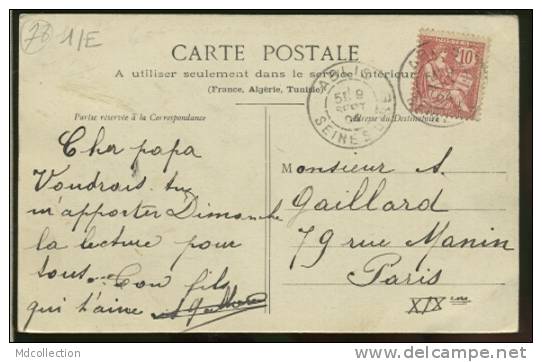 78 1/E
CARTE POSTALE
A utiliser seulement dans le service intérieur
(France, Algérie, Tunisie)
Partie réservée à la Correspondance
Adresse du Destinataire
ABLIS
5E 9
SEPT
SEINE &
POSTES
10
Cher papa
Voudrais tu
m'apporter Dimanche
la lecture pour
tous. Ton fils
qui t'aime
Monsieur A.
Gaillard
79 rue Manin
Paris
XIX
Mdcollection
www.delcampe.net